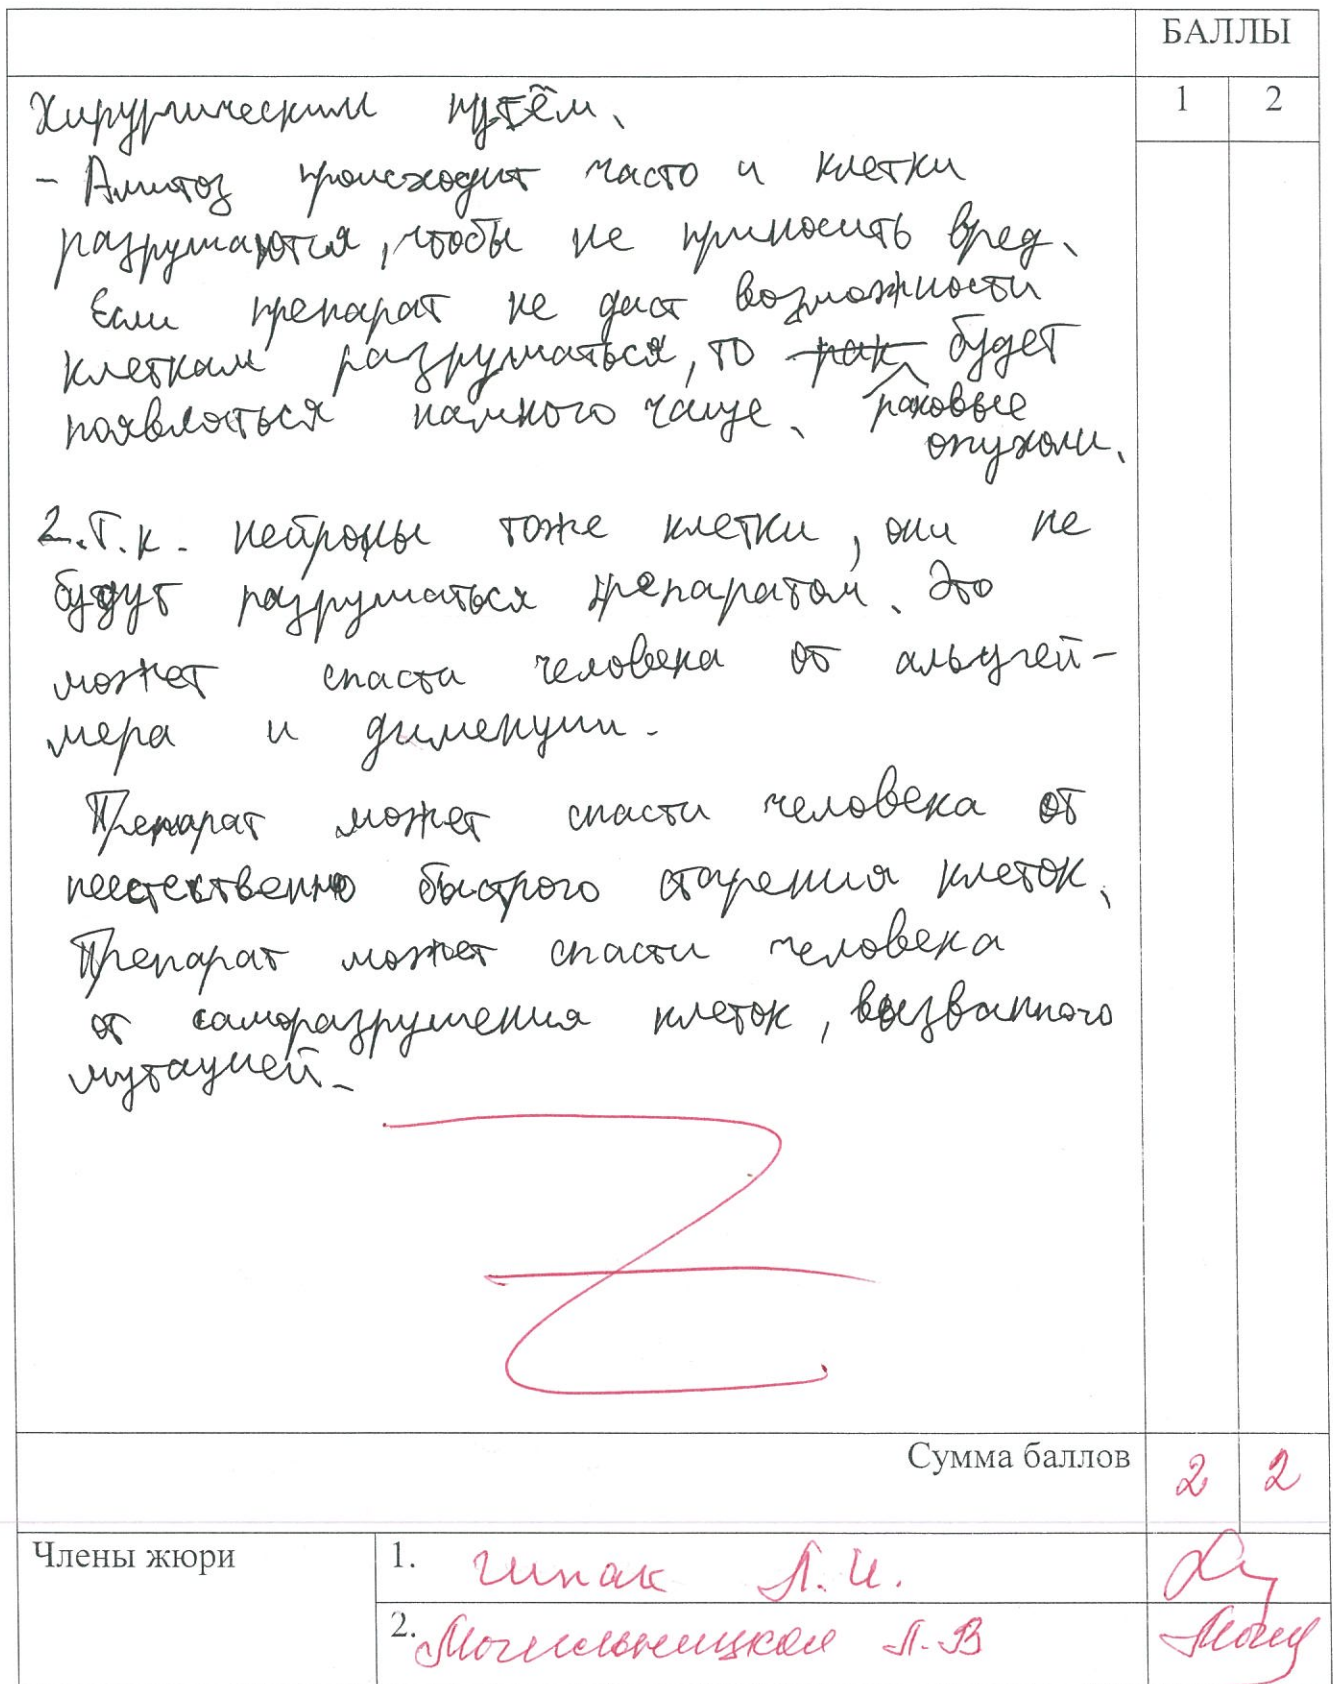 БАЛЛЫ
1 2
Хирургическим путём.
- Амитоз происходит часто и клетки
разрушаются, чтобы не приносить вред.
Если препарат не даст возможности
клеткам разрушаться, то рак будет
появляться намного чаще. раковые
опухоли.
2. Т.к. нейроны тоже клетки, они не
будут разрушаться препаратом. Это
может спасти человека от альцгей-
мера и дименции.
Препарат может спасти человека от
неестественно быстрого старения клеток.
Препарат может спасти человека
от саморазрушения клеток, вызванного
мутацией.
Сумма баллов 2 2
Члены жюри
1. Шпак Л.И.
2. Могильницкая Л.В